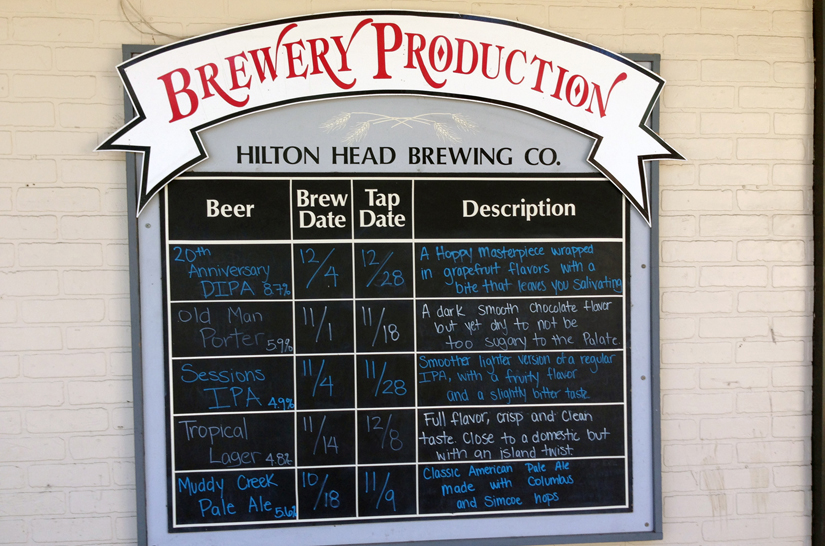 BREWERY PRODUCTION
HILTON HEAD BREWING CO.
Beer
Brew Date
Tap Date
Description
20th
Anniversary
DIPA 8.7%
12/4
12/28
A Hoppy Masterpiece wrapped
in grapefruit flavors with a
bite that leaves you salivating
Old Man
Porter 5.9%
11/1
11/18
A dark smooth chocolate flavor
but yet dry to not be
too sugary to the Palate.
Sessions
IPA 4.9%
11/4
11/28
Smoother lighter version of a regular
IPA, with a fruity flavor
and a slightly bitter taste
Tropical
Lager 4.8%
11/14
12/8
Full flavor, crisp and clean
taste. Close to a domestic but
with an island twist.
Muddy Creek
Pale Ale 5.6%
10/18
11/9
Classic American Pale Ale
made with Columbus
and Simcoe hops